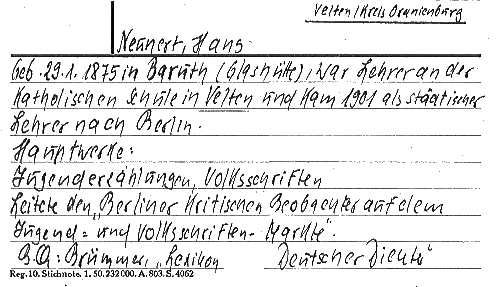 Velten/Kreis Oranienburg
Neunert, Hans
Geb. 29.1.1875 in Baruth (Glashütte), war Lehrer an der
Katholischen Schule in Velten und kam 1901 als städtischer
Lehrer nach Berlin.
Hauptwerke:
Jugenderzählungen, Volksschriften
Leitete den „Berliner Kritischen Beobachter auf dem
Jugend- und Volksschriften-Markte".
B.Qu: Brümmer, „Lexikon Deutscher Dichte"
Reg. 10. Stichnote. 1. 50. 232000. A. 803. S. 4062